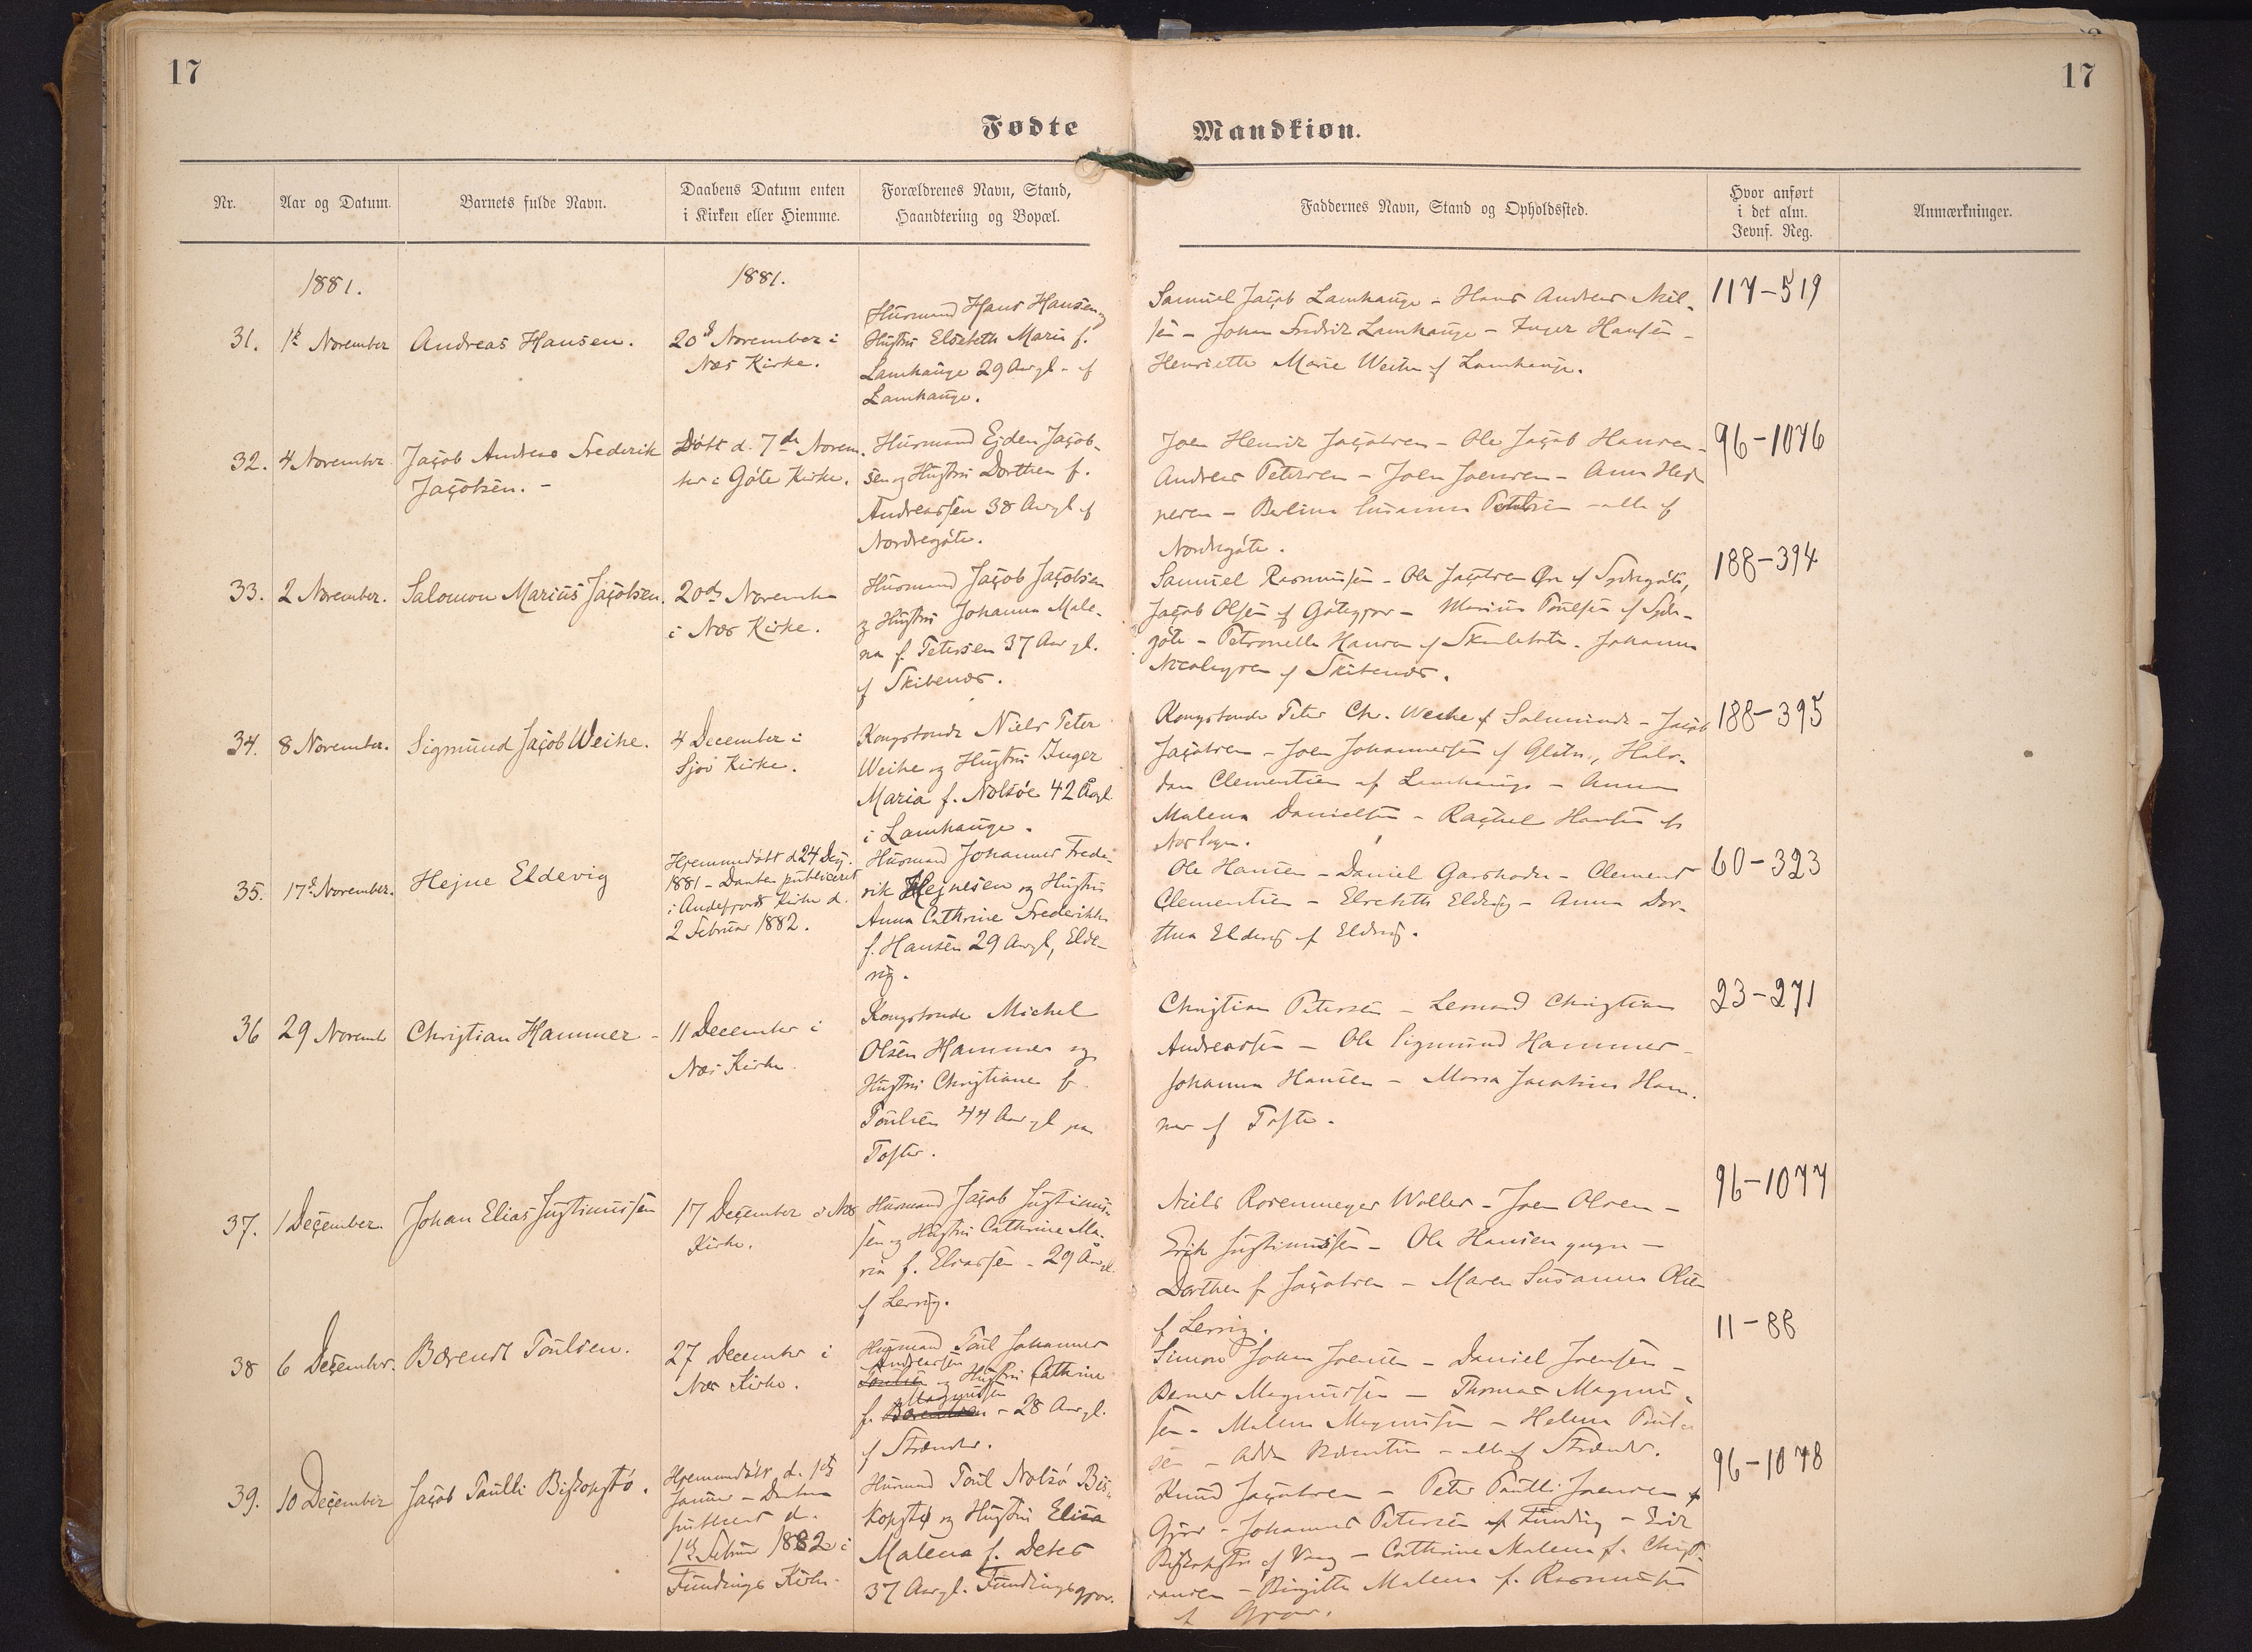 17
17
Fødte
Mandkiøn.
Nr.
Aar og Datum.
Barnets fulde Navn.
Daabens Datum enten
i Kirken eller Hiemme.
Forældrenes Navn, Stand,
Haandtering og Bopæl.
Faddernes Navn, Stand og Opholdssted.
Hvor anført
i det alm.
Jevnf. Reg.
Anmærkninger.
1881.
1881.
31.
November
Andreas Hansen.
20 November i
Næs Kirke.
Huusmand Hans Hansen og
Hustru Elsebeth Maria f.
Lamhauge 29 Aar gl. - af
Lamhauge.
Samuel Jacob Lamhauge - Hans Andreas Niel-
sen - Johan Fredrik Lamhauge - Inger Hansen -
Henriette Marie Weihe af Lamhauge.
117-519
32.
4 November
Jacob Andreas Frederik
Jacobsen. -
Døbt d. 7de Novem-
ber i Gøte Kirke.
Huusmand Ejden Jacob-
sen og Hustru Dorthea f.
Andreassen 38 Aar gl. af
Nordregøte.
Joen Henrik Jacobsen - Ole Jacob Hansen -
Andreas Petersen - Joen Joensen - Anna
- Susanna - alle af
Nordregøte.
96-1076
33.
2 November.
Salomon Marius Jacobsen.
20de November
i Næs Kirke.
Huusmand Jacob Jacobsen
og Hustru Johanna Male-
na f. Petersen 37 Aar gl.
af Skibenæs.
Samuel Rasmussen - Ole Jacobsen af Sydregøte,
Jacob Olsen af Gøtegjov - Marius Poulsen af Sydre-
gøte - Petronella Hansen af - Johanna
af Skibenæs.
188-394
34.
8 November.
Sigmund Jacob Weihe.
4 December i
Sjov Kirke.
Kongsbonde Niels Peter
Weihe og Hustru Inger
Maria f. Nolsøe 42 Aar gl.
i Lamhauge.
Kongsbonde Peter Chr. Weihe af - Jacob
Jacobsen - Joen Johannesen af Glibre, Halv-
dan Clementsen af Lamhauge - Anna
Malena Danielsen - Rachel Hansen af
Næs Sogn.
188-395
35.
17de November.
Hejne Eldevig
Hjemmedøbt d. 24 Dec.
1881 - Daaben publiceret
i Andefjords Kirke d.
2 Februar 1882.
Huusmand Johannes Frede-
rik Hejnesen og Hustru
Anna Cathrine Frederikke
f. Hansen 29 Aar gl., Elde-
vig.
Ole Hansen - Daniel - Clement
Clementsen - Elsebeth Eldevig - Anna Dor-
thea Eldevig af Eldevig.
60-323
36
29 Novemb
Christian Hammer -
11 December i
Næs Kirke.
Kongsbonde Michel
Olsen Hammer og
Hustru Christiane f.
Poulsen 44 Aar gl. paa
Tofter.
Christian Petersen - Leonard Christian
Andreassen - Ole Sigmund Hammer -
Johanna Hansen - Maria Jacobine Ham-
mer af Tofte.
23-271
37.
1 December.
Johan Elias Justinussen
17 December i Næs
Kirke.
Huusmand Jacob Justinus-
sen og Hustru Cathrine Ma-
ria f. Eliassen - 29 Aar gl.
af Lervig.
Niels Rosenmeyer Woller - Joen Olsen -
Erik Justinussen - Ole Hansen yngre -
Dorthea f. Jacobsen - Maren Susanna Olsen
af Lervig.
96-1077
38
6 December.
Bærendt Poulsen.
27 December i
Næs Kirke.
Huusmand Poul Johannes
Andreassen
Poulsen og Hustru Cathrine
Magnussen
f. Bærendsen - 28 Aar gl.
af Strænder.
Simon Johan Joensen - Daniel Joensen -
Berner Magnussen - Thomas Magnus-
sen - Malena Magnussen - Helena Poul-
sen - Adda - alle af Strænder.
11-88
39.
10 December
Jacob Paulli Biskopstø.
Hjemmedøbt d. 1ste
Januar - Daaben
publiceret d.
1ste Februar 1882 i
Fundings Kirke.
Huusmand Poul Nolsø Bis-
kopstø og Hustru Elisa
Malena f. Debes
37 Aar gl. Fundingsgjov.
Knud Jacobsen - Peter Poulli Joensen af
Gjov - Johannes Petersen af Funding - Erik
Biskopstø af Vaag - Cathrine Malena f. Christi-
ansen - Birgitte Malena f. Rasmussen
af Gjov.
96-1078